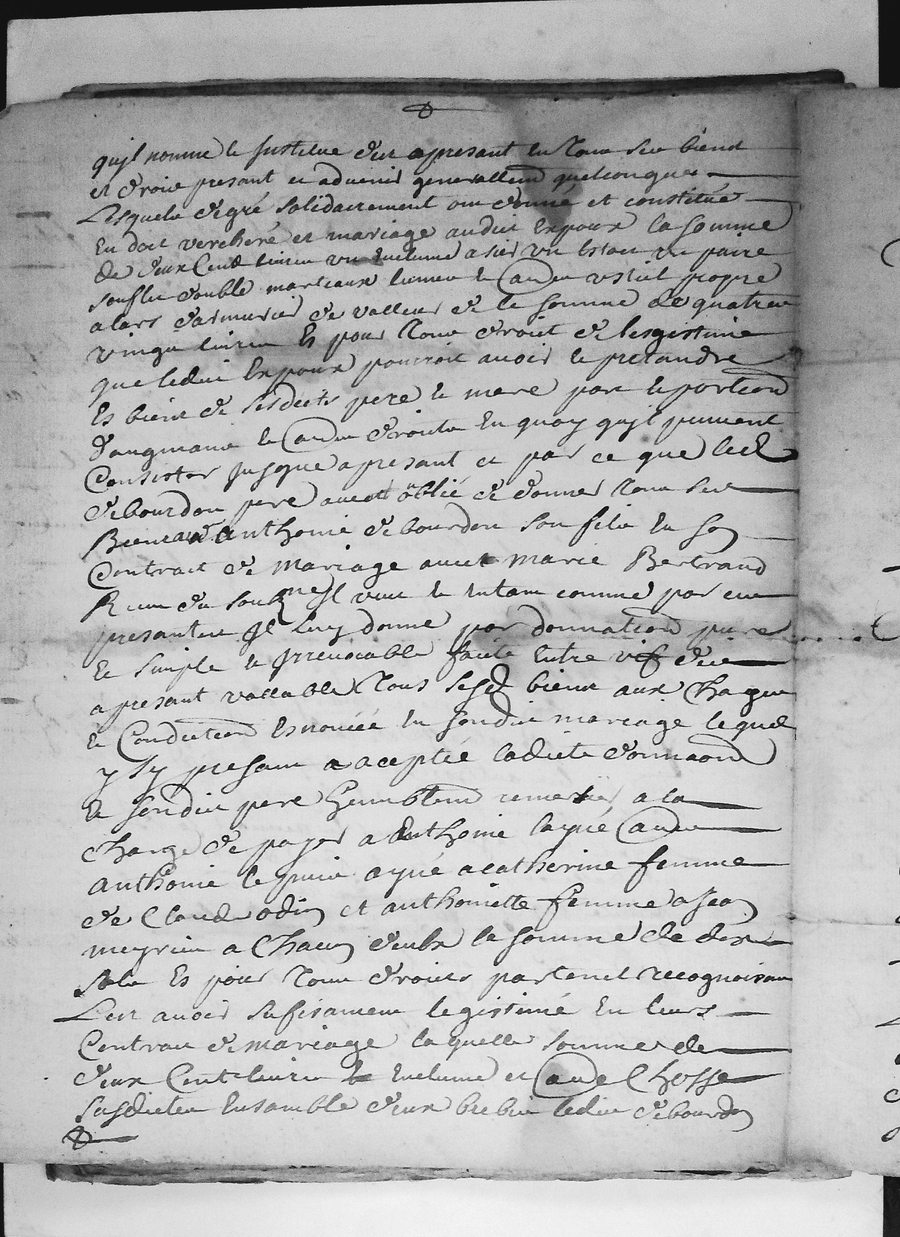 quyl nomme & Institue dez apresant en tous ses biens
et droits presant et advenir generallem quelconques
Lesquels de gré solidairement ont donné et constitué
En dot verchere et mariage audit Expoux la somme
de deux Cent livres un enclume a sier un Estau un paire
souflet double marteaux limes & autres ustil propre
a lars darmurier de valleur de la somme de quatre
vingt livres Es pour tous droits de lesgistime
que ledit Expoux pourroit avoir & pretandre
Es biens de sesdicts pere & mere part & portion
daugmant & autres droits En quoy quyl puissent
Consister jusque apresant et par ce que led
debourdon pere avoit oblié de donner tous ses
Biens a Anthoine debourdon son filz En son
Contract de Mariage avec Marie Bertrand
Receu du soubzne Il veut & entant comme par ces
presantes Il luy donne par donnation pure
& simple & Irrevocable faite Entre vif dez
apresant vallable tous sesd biens aux charges
& Condictions Esnoncée En sondit mariage lequel
y sy presant a acepté ladicte donnaon
& sondit pere humblem remersier a la
charge de payer a Anthoine layné autre
anthoine le puis ayné a catherine femme
de Claude odin et anthoinette femme a Jean
meyrieu a Chacun deulx la somme de dix
solz Es pour tous droits partenel recognoissant
Leur avoir sufisament legistimé En leurs
Contrat de mariage laquelle somme de
deux Cent livres & enclume et autre Chosse
susdictes Ensamble deux brebis ledit debourdon